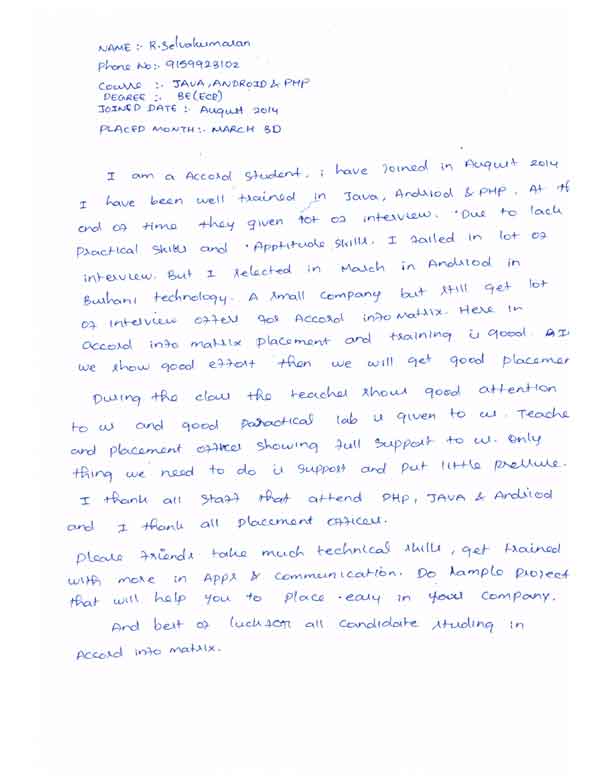 NAME :- R.Selvakumaran
Phone No:- 9159923102
Course :- JAVA, ANDROID & PHP
DEGREE :- BE(ECE)
JOINED DATE :- August 2014
PLACED MONTH:- MARCH 30
I am a Accord Student. i have Joined in August 2014
I have been well trained in Java, Andriod & PHP. At th
end of time they given lot of interview. Due to lack
Practical Skills and Apptitude Skills. I failed in lot of
interview. But I selected in March in Andriod in
Burhani technology. A small company but still get lot
of Interview offers for Accord info Matrix. Here in
accord info matrix Placement and training is good. I
we show good effort then we will get good placemen
During the class the teacher shows good attention
to us and good Paractical lab is given to us. Teache
and Placement officer Showing full Support to us. Only
thing we need to do is Support and Put little Pressure.
I thank all Staff that attend PHP, JAVA & Andriod
and I thank all Placement officers.
Please friends take much technical skills, get trained
with more in Apps & communication. Do Sample Project
that will help you to Place easy in your Company.
And best of luck for all candidate studing in
Accord info matrix.